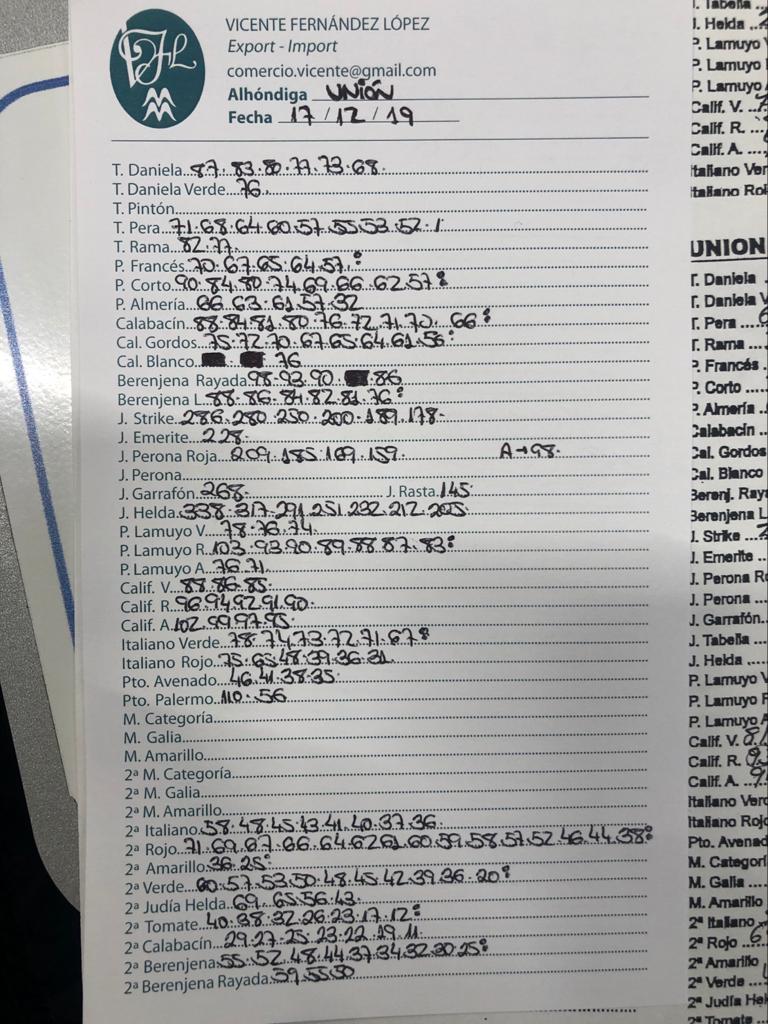 VICENTE FERNÁNDEZ LÓPEZ
Export - Import
comercio.vicente@gmail.com
Alhóndiga UNIÓN
Fecha 17/12/19
T. Daniela 87.83.80.77.73.68.
T. Daniela Verde 76.
T. Pintón
T. Pera 71.68.64.60.57.55.53.52.1
T. Rama 82.77
P. Francés 70.67.65.64.57.
P. Corto 90.84.80.74.69.66.62.57
P. Almería 66.63.61.57.32
Calabacín 88.84.81.80.76.72.71.70.66
Cal. Gordos 75.72.70.67.65.64.61.56
Cal. Blanco 76
Berenjena Rayada 98.93.90.86
Berenjena L. 88.86.84.82.81.76
J. Strike 286.280.250.200.189.178.
J. Emerite 228.
J. Perona Roja 209.185.169.159. A→98.
J. Perona
J. Garrafón 268. J. Rasta 145
J. Helda 338.317.291.251.232.212.205
P. Lamuyo V. 78.76.74.
P. Lamuyo R. 103.93.90.89.88.87.83
P. Lamuyo A. 76.71.
Calif. V. 88.86.85.
Calif. R. 96.94.92.91.90.
Calif. A. 102.99.97.95.
Italiano Verde 78.74.73.72.71.67
Italiano Rojo 75.65.48.39.36.31.
Pto. Avenado 46.41.38.35.
Pto. Palermo 110.56
M. Categoría
M. Galia
M. Amarillo
2ª M. Categoría
2ª M. Galia
2ª M. Amarillo
2ª Italiano 58.48.45.43.41.40.37.36.
2ª Rojo 71.69.67.66.64.62.61.60.59.58.57.52.46.44.38
2ª Amarillo 36.25
2ª Verde 60.57.53.50.48.45.42.39.36.20
2ª Judía Helda 69.65.56.43.
2ª Tomate 40.38.32.26.23.17.12
2ª Calabacín 29.27.25.23.22.19.11.
2ª Berenjena 55.52.48.44.37.34.32.30.25
2ª Berenjena Rayada 59.55.50
J. Helda
P. Lamuyo
P. Lamuyo
P. Lamuyo
Calif. V.
Calif. R.
Calif. A.
Italiano Ver
Italiano Roj
UNION
T. Daniela
T. Daniela V
T. Pera
T. Rama
P. Francés
P. Corto
P. Almería
Calabacín
Cal. Gordos
Cal. Blanco
Berenj. Raya
Berenjena L
J. Strike
J. Emerite
J. Perona Ro
J. Perona
J. Garrafón
J. Tabella
J. Helda
P. Lamuyo V
P. Lamuyo R
P. Lamuyo A
Calif. V.
Calif. R.
Calif. A.
Italiano Verd
Italiano Rojo
Pto. Avenad
M. Categorí
M. Galia
M. Amarillo
2ª Italiano
2ª Rojo
2ª Amarillo
2ª Verde
2ª Judía Hel
2ª Tomate